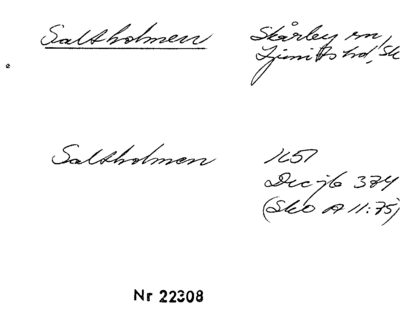 Saltholmen Skårby sn,
Ljunits hd, Sk
Saltholmen 1651
Decjb 374
(Sko A 11:75)
Nr 22308